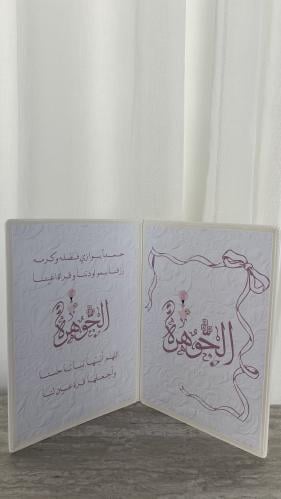 حمداً يوازي فضله وكرمه
رزقنا بمولودتنا وقرة أعيننا
الجوهرة
اللهم أنبتها نباتاً حسناً
وأجعلها قرة عين لنا
الجوهرة